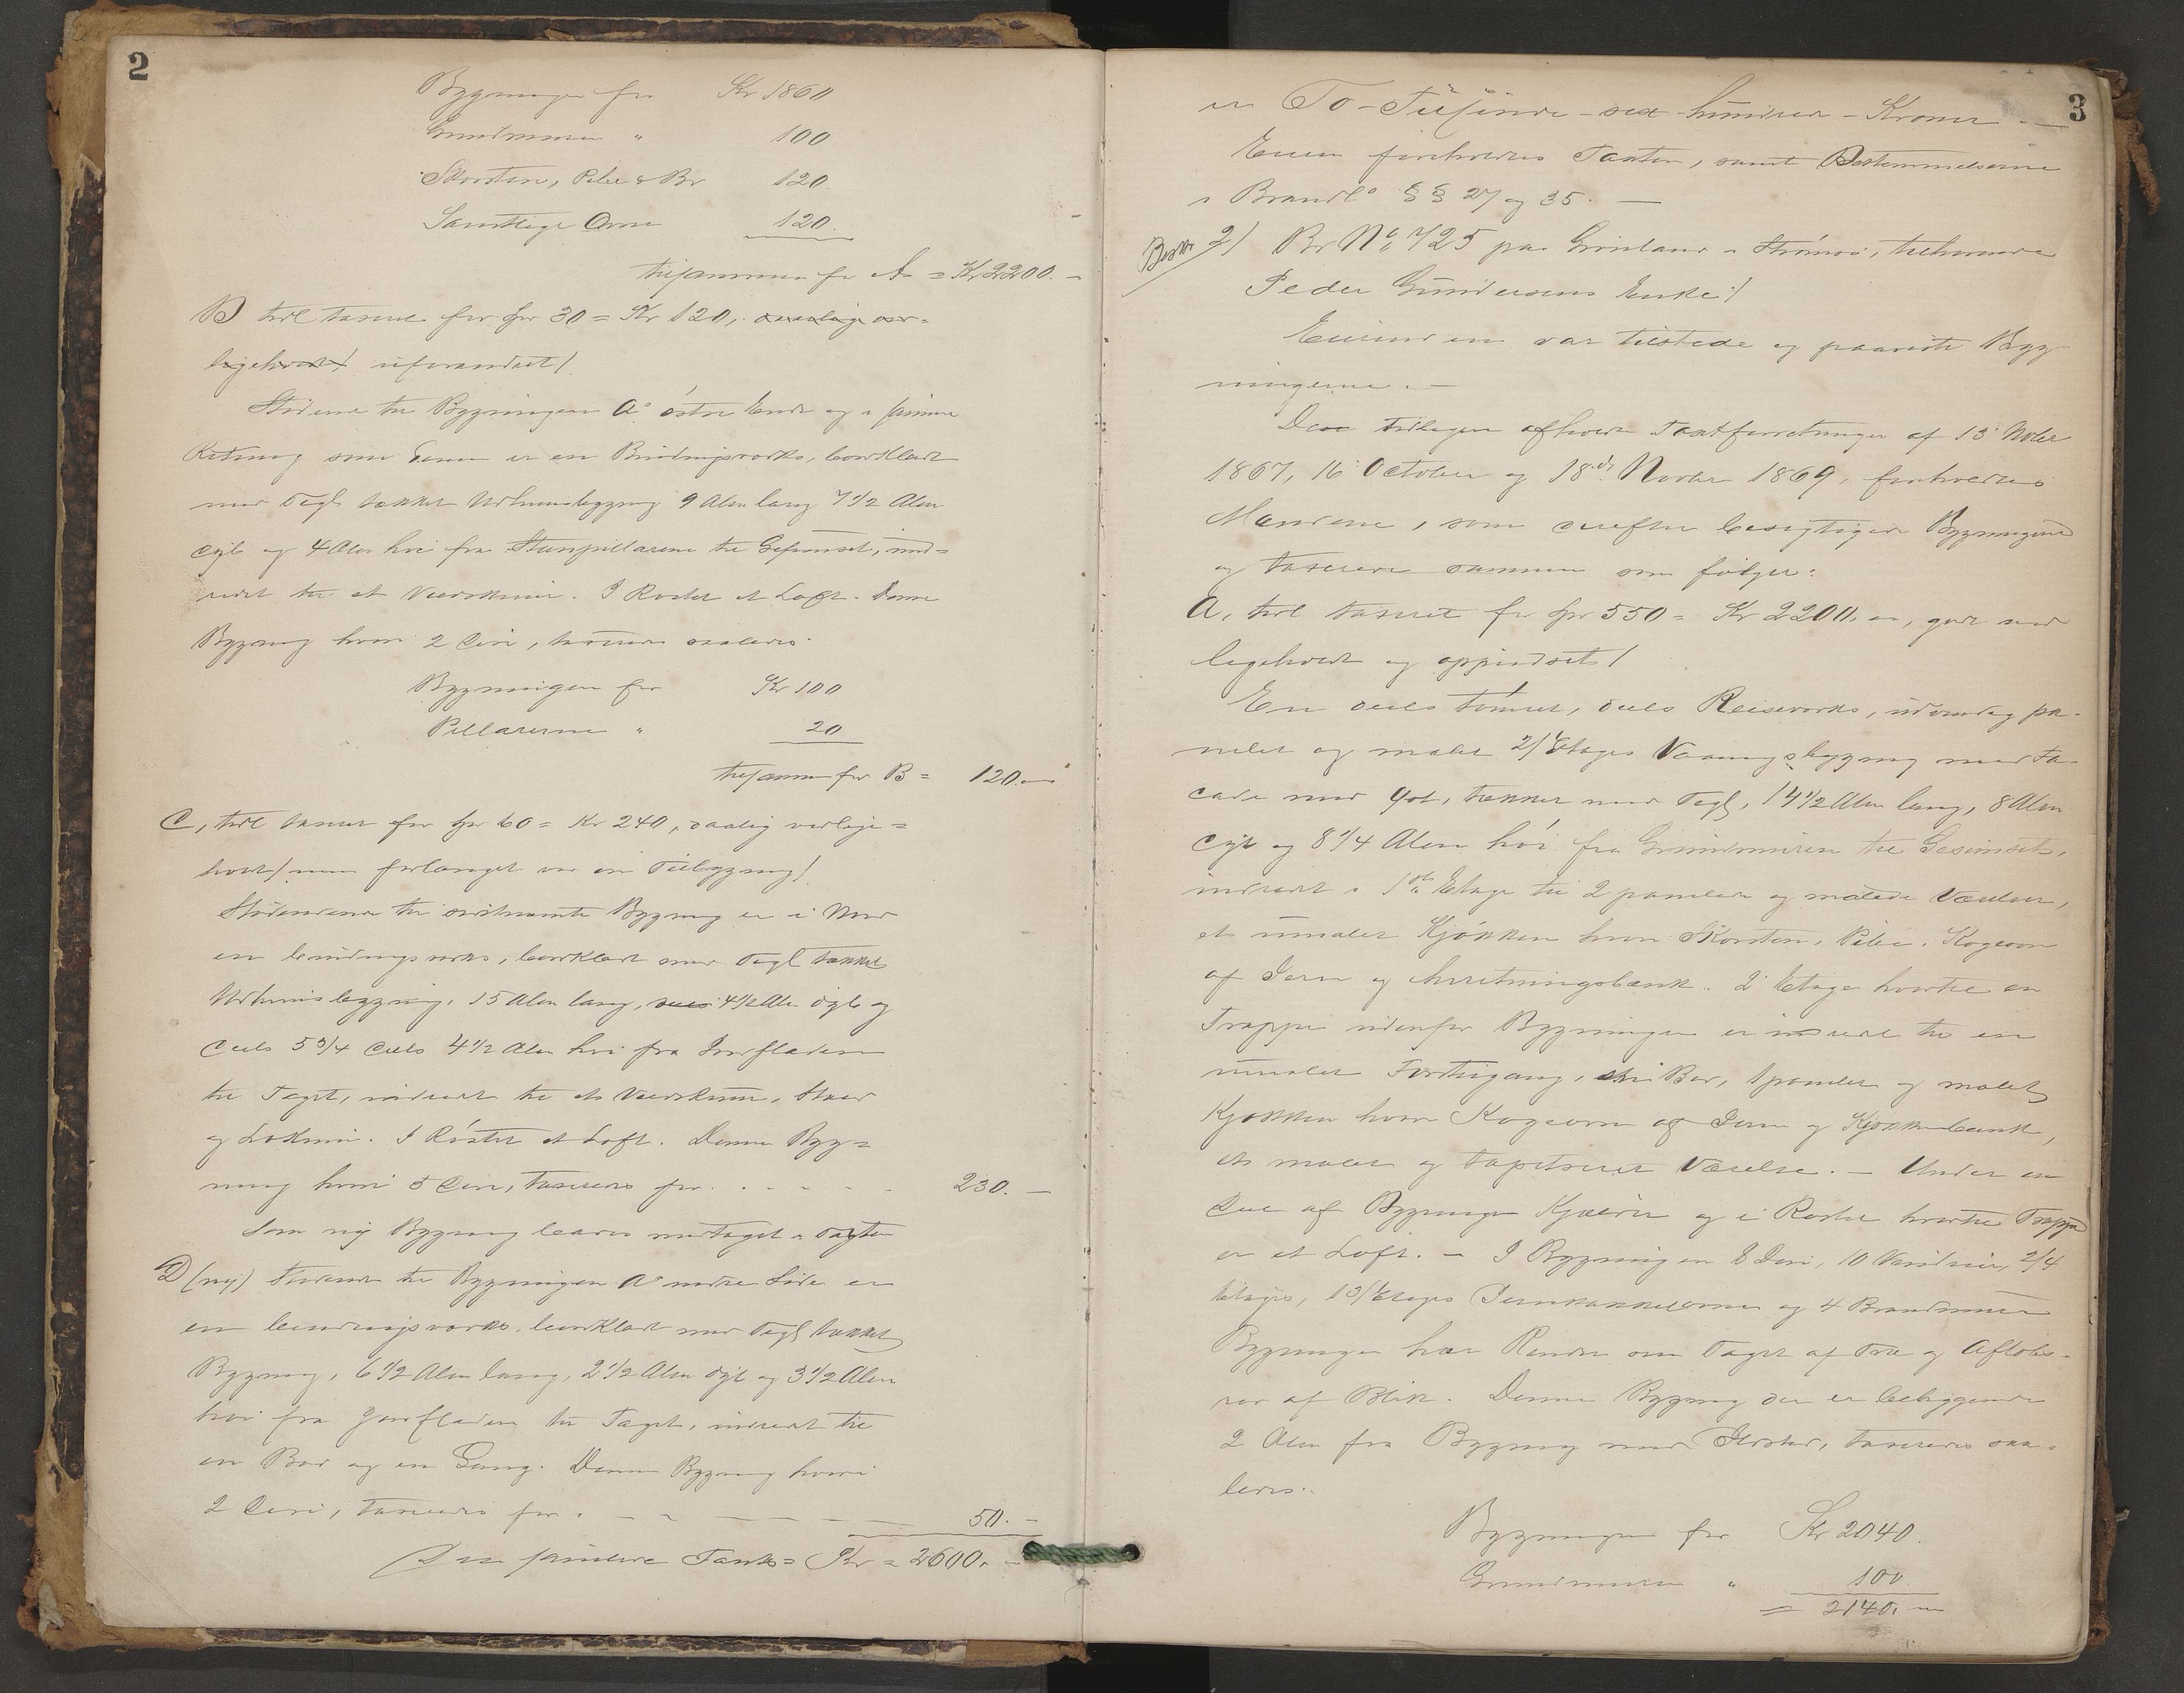 2
Bygningen for Kr 1860
Grundmuren " 100
Skorsten, Pibe & Br 120
Samtlige Ovne 120.
tilsammen for A = Kr 2200. -
B) taxeret for Spd 30 = Kr 120,
uforandret/.
Stødende til Bygningen A° østre Ende og i samme
Retning som denne er en Bindingsværks, bordklædt
med Tegl tækket Udhuusbygning 9 Alen lang 7 1/2 Alen
dyb og 4 Alen høi fra Steenpillarerne til Gesimset, ind-
redet til et Vedskuur. I Røstet et Loft. Denne
Bygning hvori 2 Døre, taxeres saaledes:
Bygningen for Kr 100
Pillarerne " 20
tilsammen for B = 120. -
C, taxeret for Spd 60 = Kr 240, daarlig vedlige-
holdt/ men forlænget ved en Tilbygning/.
Stødende til Bygning er i Nord
en bindingsværks, bordklædt med Tegl tækket
Udhuusbygning, 15 Alen lang, 4 1/2 Alen dyb og
deels 5 3/4 deels 4 1/2 Alen høi fra Jordfladen
til Taget, indredet til et Vedskuur, Stald
og Lokum. I Røstet et Loft. Denne Byg-
ning hvori 5 Døre, taxeres for . . - - - - 230. -
Som ny Bygning blev medtaget i Taxten
D (ny) Stødende til Bygningen A° nordre Side er
en bindingsværks, bordklædt med Tegl tækket
Bygning, 6 1/2 Alen lang, 2 1/2 Alen dyb og 3 1/2 Alen
høi fra Jordfladen til Taget, indredet til
en Bod og en Gang. Denne Bygning hvori
2 Døre, taxeres for . - - - - - 50. -
Den samlede Taxt = Kr = 2600. -
3
er To-Tusinde-sex-hundrede-Kroner. -
Eieren foreholdtes Taxten, samt Bestemmelserne
i Brandl° §§ 27 og 35. -
2/ Br N° 725 paa Grønland i Strømsø, tilhørende
Peder Gundersens Enke/
Eierinden var tilstede og paaviste Byg
ningerne. -
De tidligere afholdte Taxtforretninger af 13 Novbr
1867, 16 October og 18de Novbr 1869, foreholdtes
Mændene, som derefter besigtigede Bygningerne
og taxerede samme som følger:
A, taxeret for Spd 550 = Kr 2200, er, godt ved
ligeholdt og oppudset/
En deels tømret, deels Reisverks, udvendig pa-
nelet og malet 2/Etages Vaaningsbygning med Fa-
cade mod Øst, tækket med Tegl, 14 1/2 Alen lang, 8 Alen
dyb og 8 1/4 Alen høi fra Grundmuren til Gesimset,
indredet i 1ste Etage til 2 panelede og malede Værelser,
et umalet Kjøkken hvor Skorsten, Pibe, Kogeovn
af Jern og Anretningsbænk. 2 Etage hvortil en
Trappe udenfor Bygningen er indredet til en
umalet Fortrigang, Bod, 1 panelet og malet
Kjøkken hvor Kogeovn af Jern og Kjøkkenbænk,
et malet og tapetseret Værelse. - Under en
Deel af Bygningen Kjælder og i Røstet hvortil Trappe
er et Loft. - I Bygningen 8 Døre, 10 Vinduer, 2/4
Etages, 1 3/Etages Jernkakkelovne og 4 Brandmure
Bygningen har Render om Taget af Træ og Afløbs-
rør af Blik. Denne Bygning der er beliggende
2 Alen fra Bygning med Ildsted, taxeres saa-
ledes:
Bygningen for Kr 2040.
Grundmuren " 100.
= 2140. -